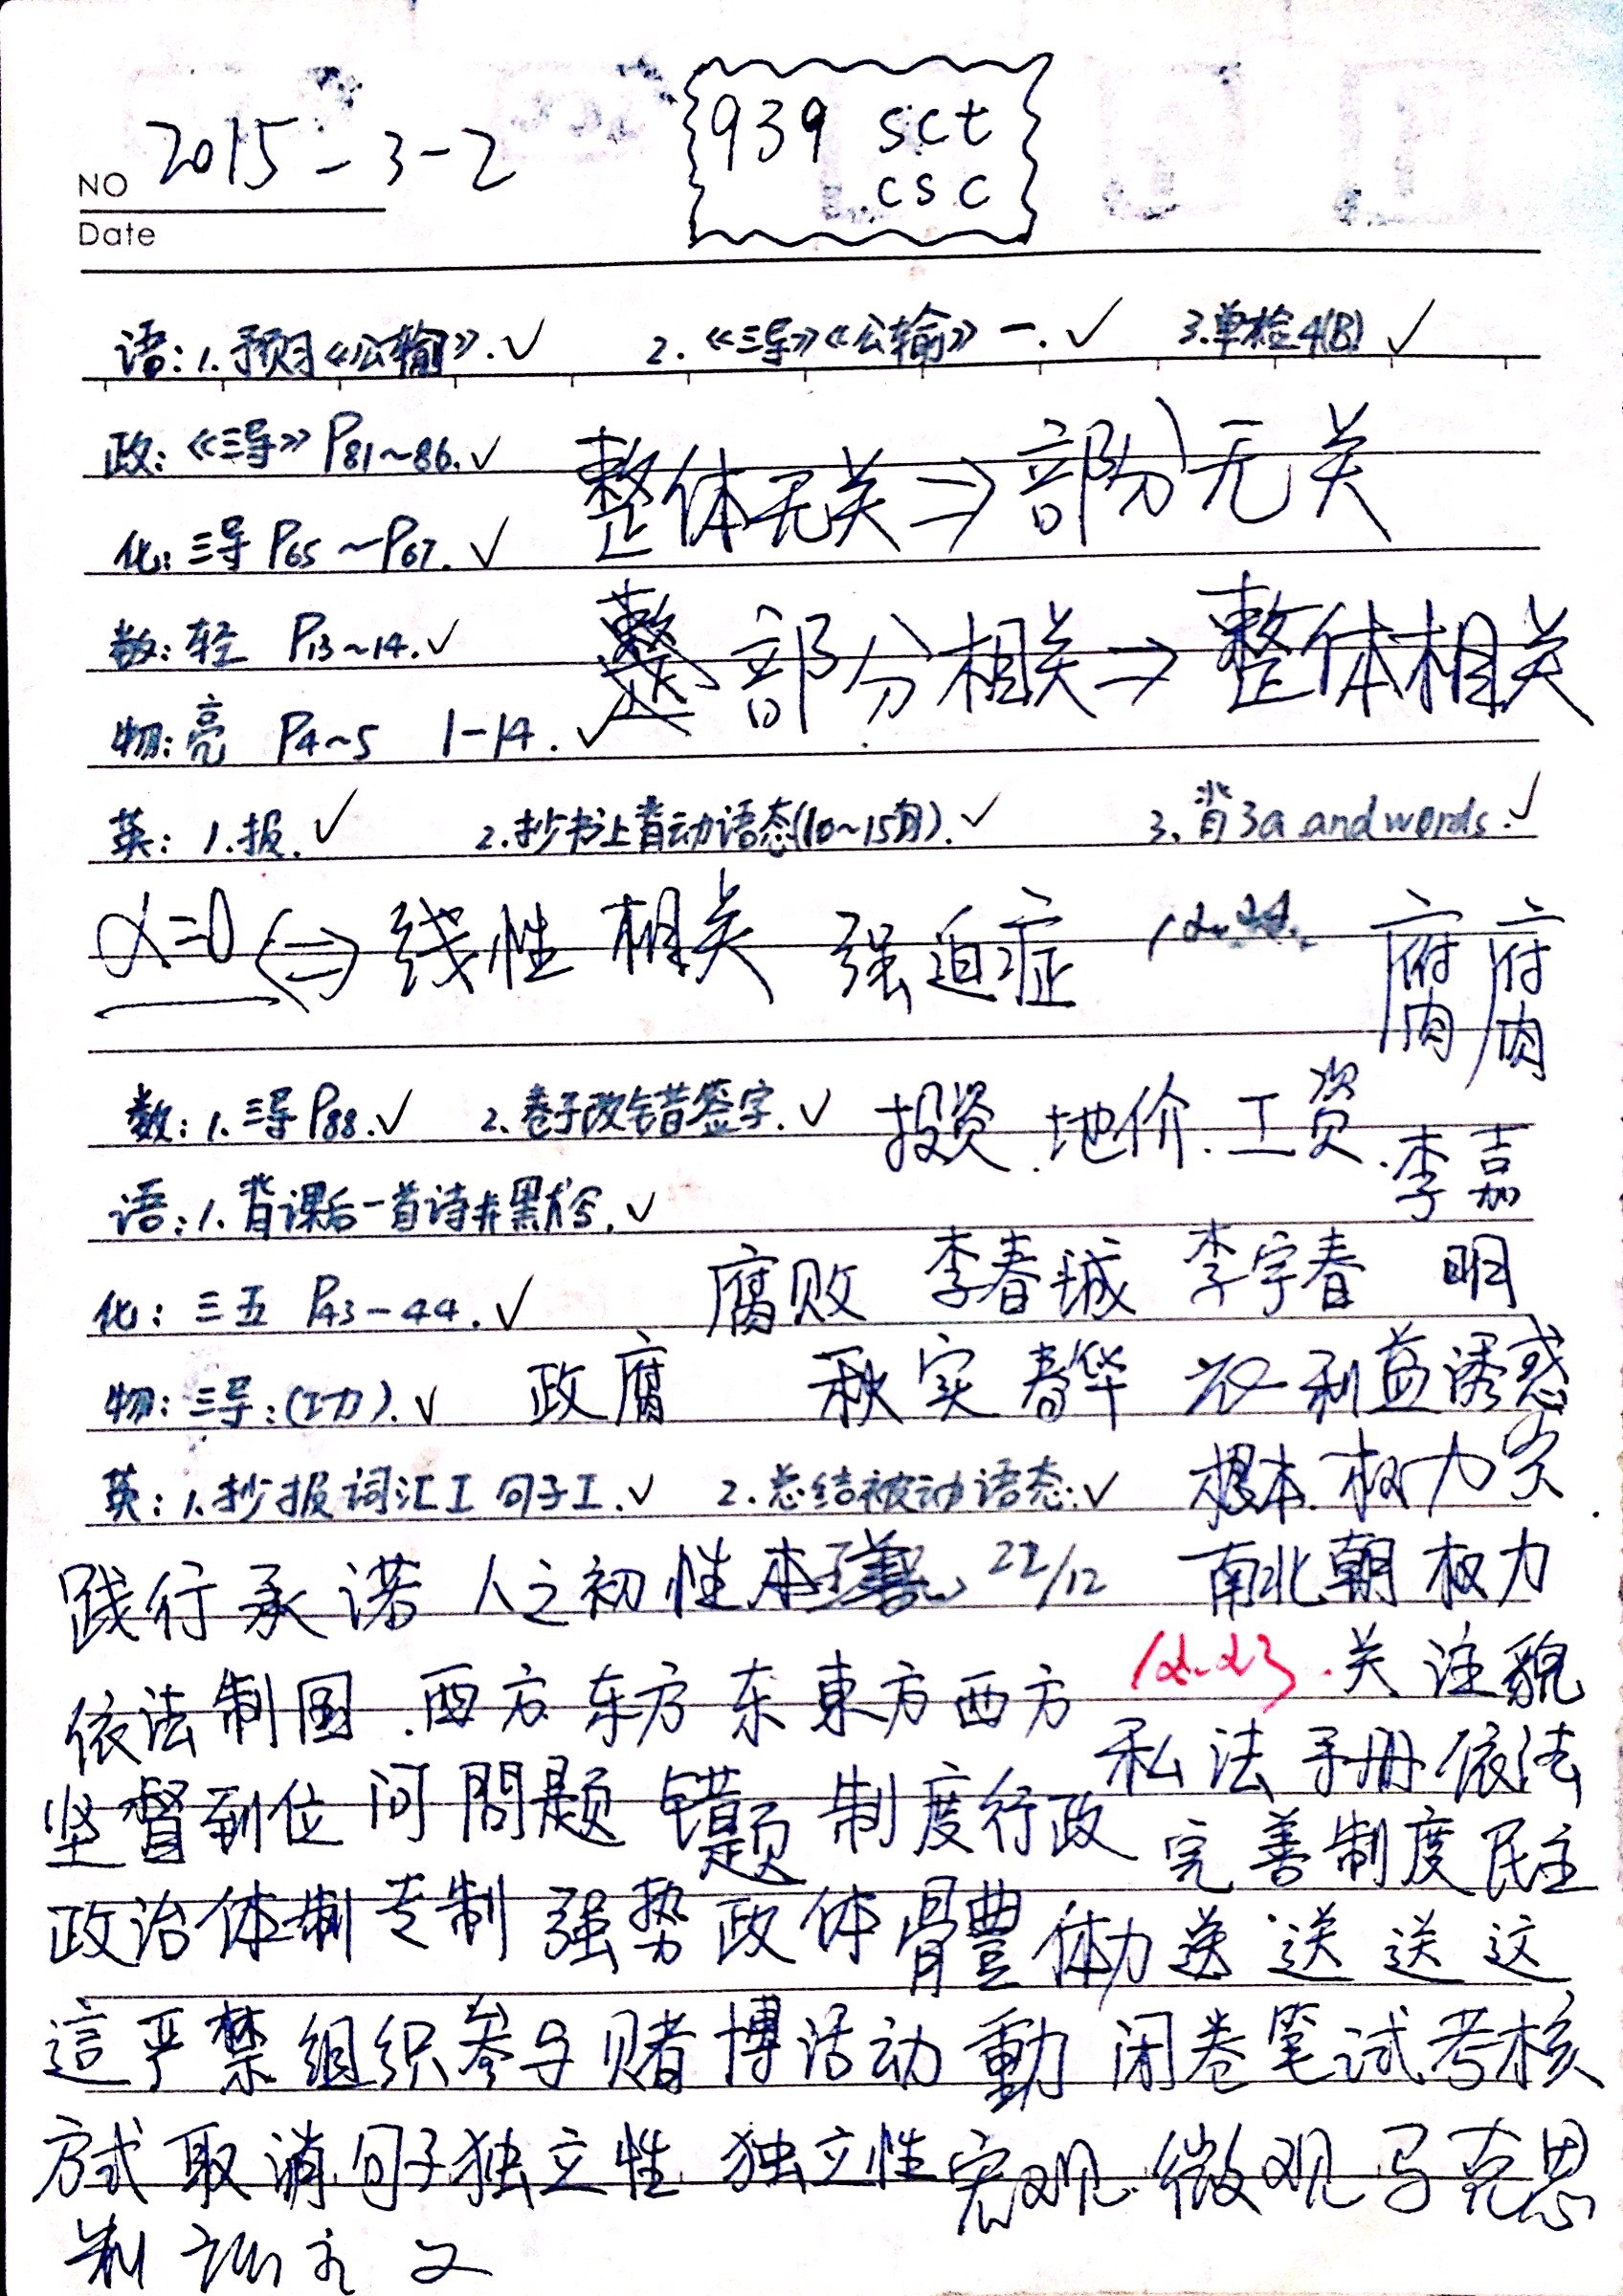 NO 2015-3-2
939 sct
csc
Date
语: 1. 预习《公输》. ✓ 2. 《三导》《公输》一. ✓ 3. 单检4(B) ✓
政: 《三导》P81~86. ✓
整体无关⇒部分无关
化: 三导 P65~P67. ✓
数: 轻 P13~14. ✓
部分相关⇒整体相关
物: 亮 P4~5 1-14. ✓
英: 1. 报. ✓ 2. 抄书上 动语态(10~15句). ✓ 3. 背3a and words. ✓
α=0⇔线性相关 强迫症 12.24. 腐 腐
数: 1. 三导P88. ✓ 2. 卷子改错签字. ✓ 投资. 地价. 工资. 李嘉
语: 1. 背课后一首诗并默写. ✓
化: 三五 P43-44. ✓ 腐败 李春城 李宇春 明
物: 三导: (功). ✓ 政腐 秋实春华 利益诱惑
英: 1. 抄报词汇I 句子I. ✓ 2. 总结被动语态. ✓ 根本. 权力
践行承诺 人之初性本善 22/12 南北朝权力
依法制国. 西方东方东東方西方 12.23. 关注貌
私法手册依法
坚督到位问問题错题制度行政完善制度民主
政治体制专制强势政体體体力送送送这
這严禁组织参与赌博活动動闭卷笔试考核
方式取消句子独立性. 独立性宏观. 微观马克思
主义